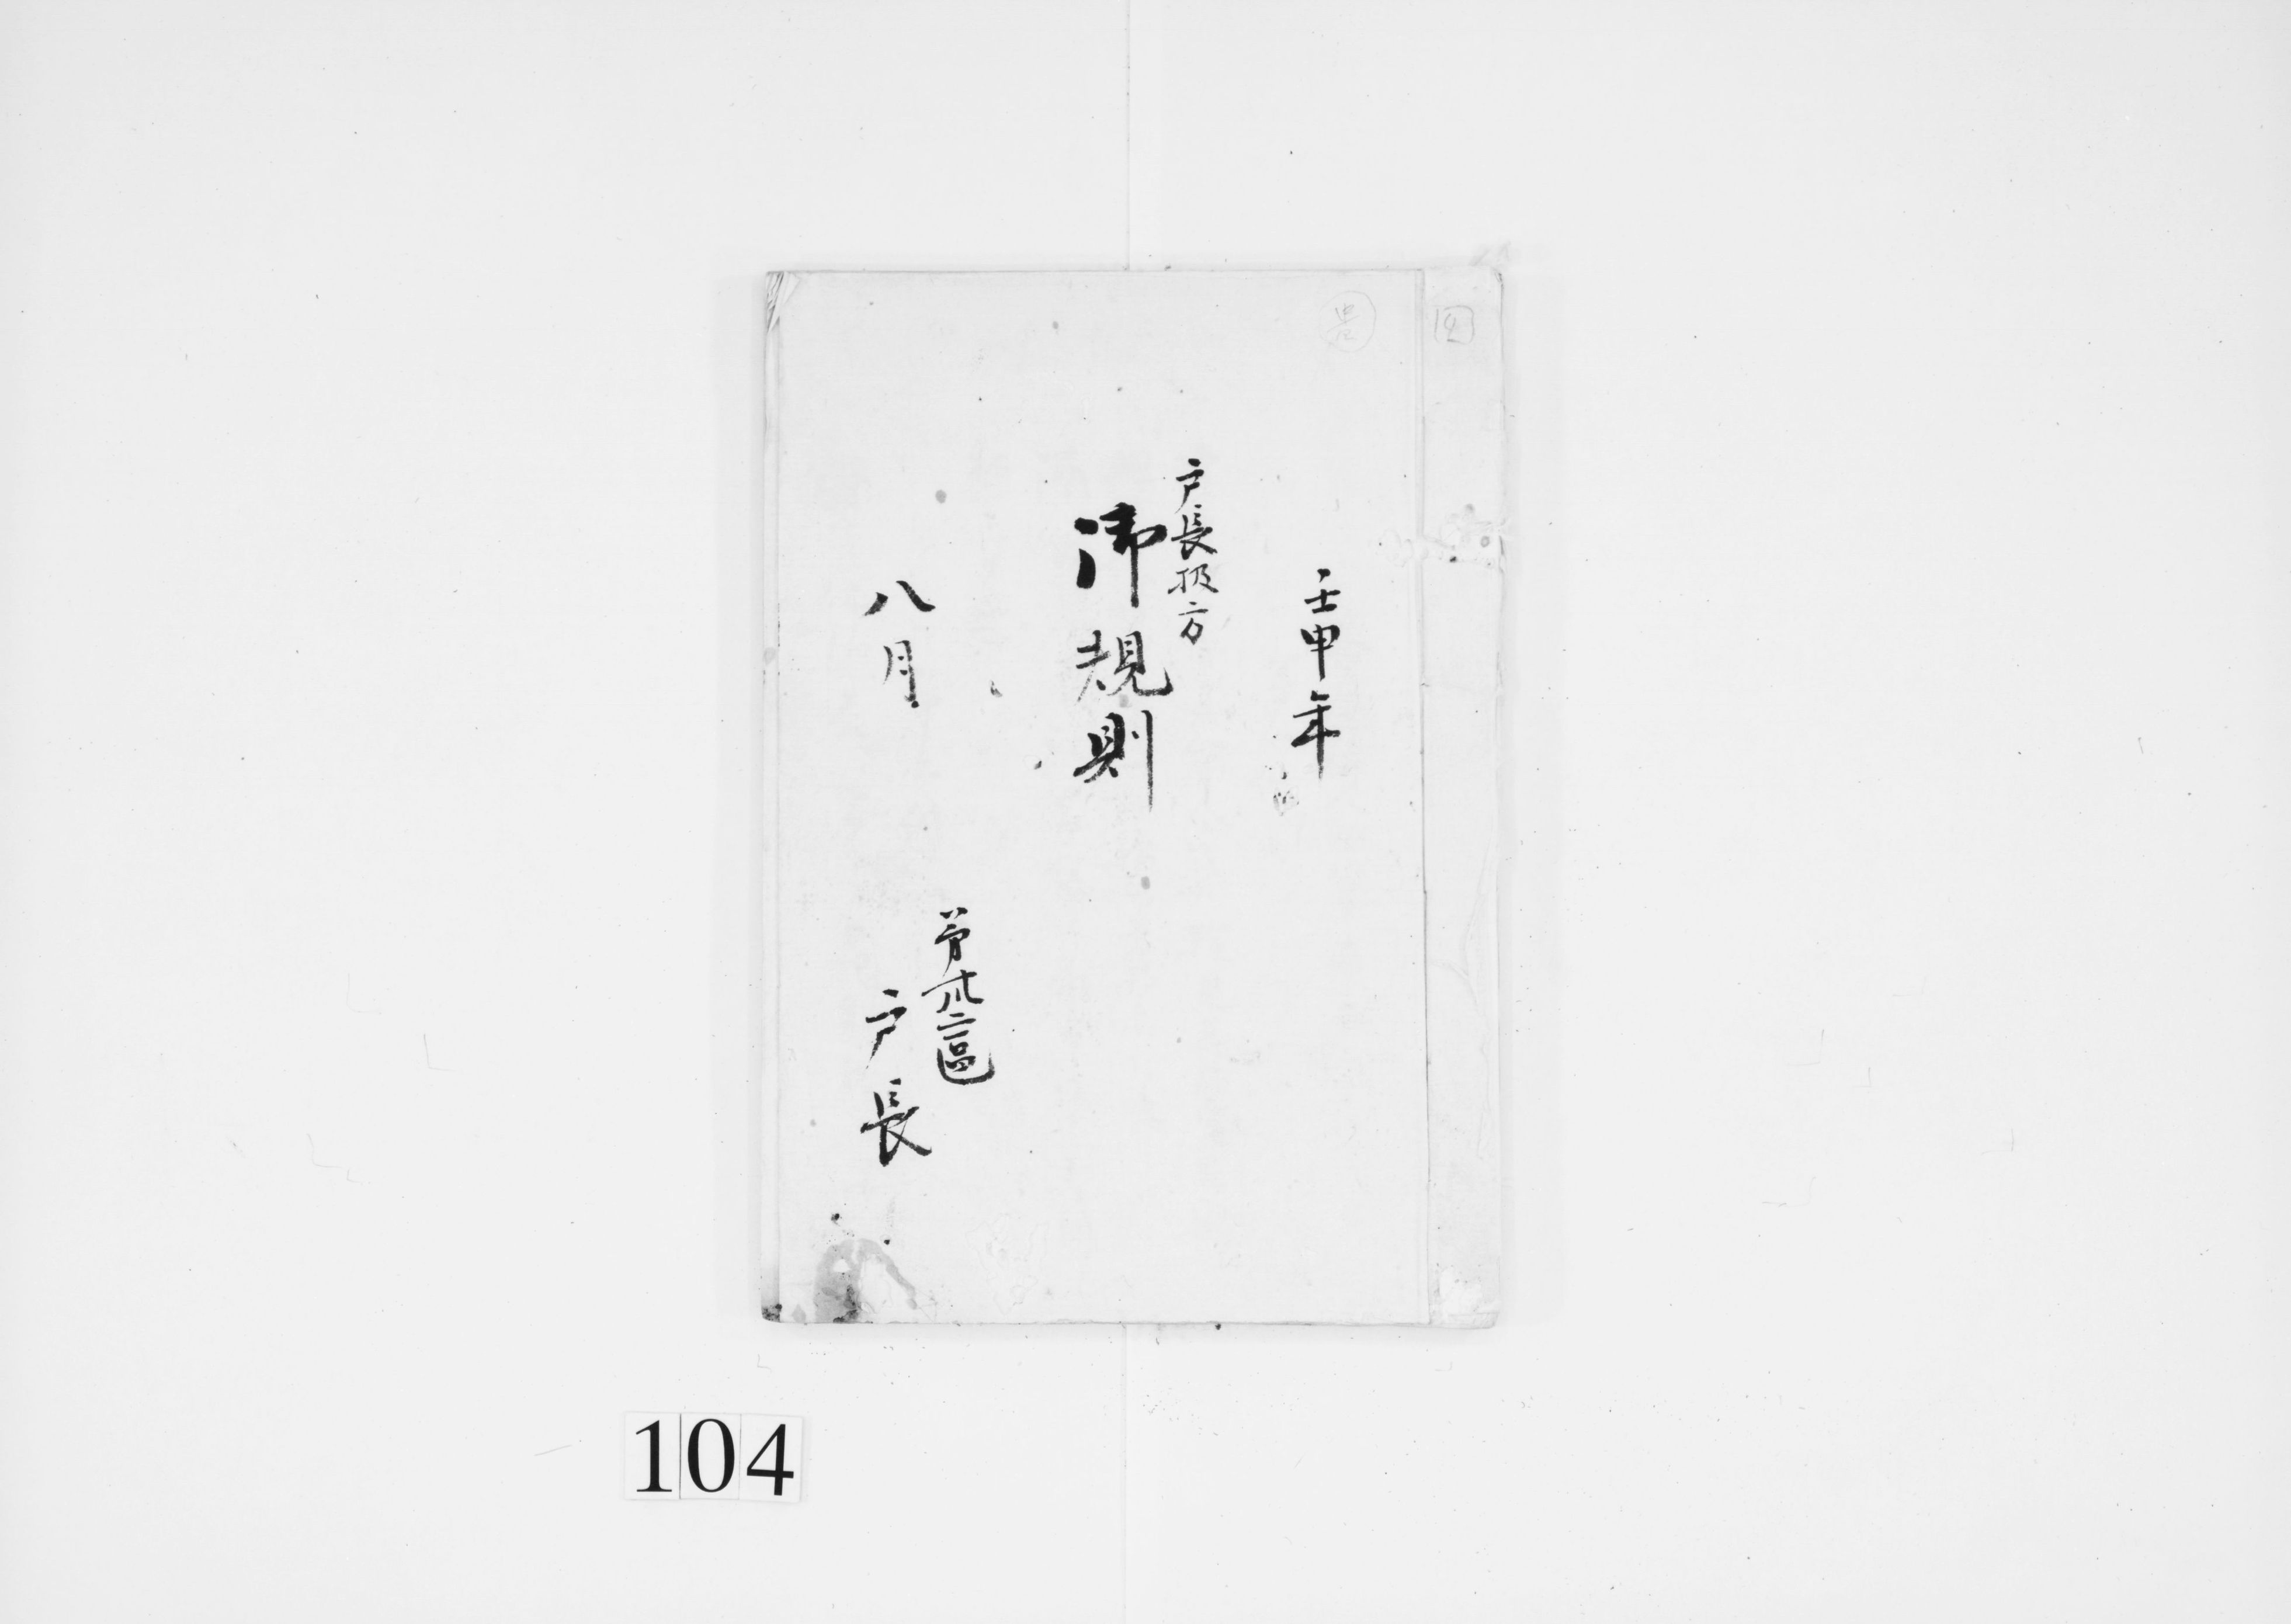 壬申年
戸長扱方
御規則
八月
第廿二區
戸長
104